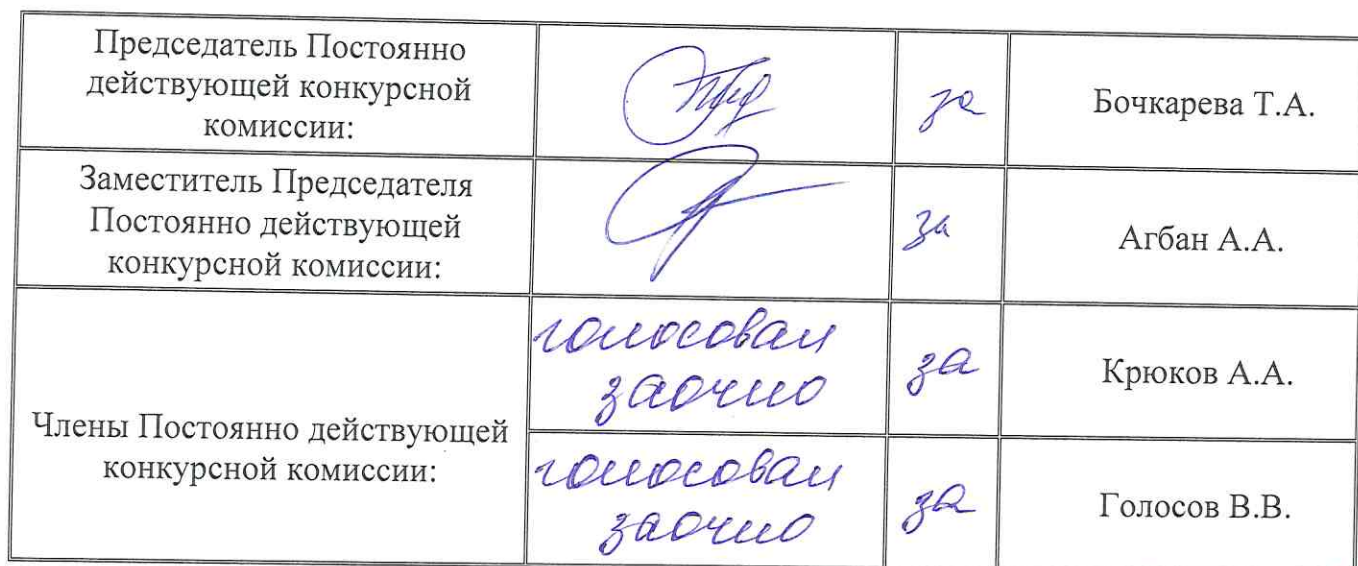 Председатель Постоянно
действующей конкурсной
комиссии:
за
Бочкарева Т.А.
Заместитель Председателя
Постоянно действующей
конкурсной комиссии:
за
Агбан А.А.
Члены Постоянно действующей
конкурсной комиссии:
голосовал
заочно
за
Крюков А.А.
голосовал
заочно
за
Голосов В.В.